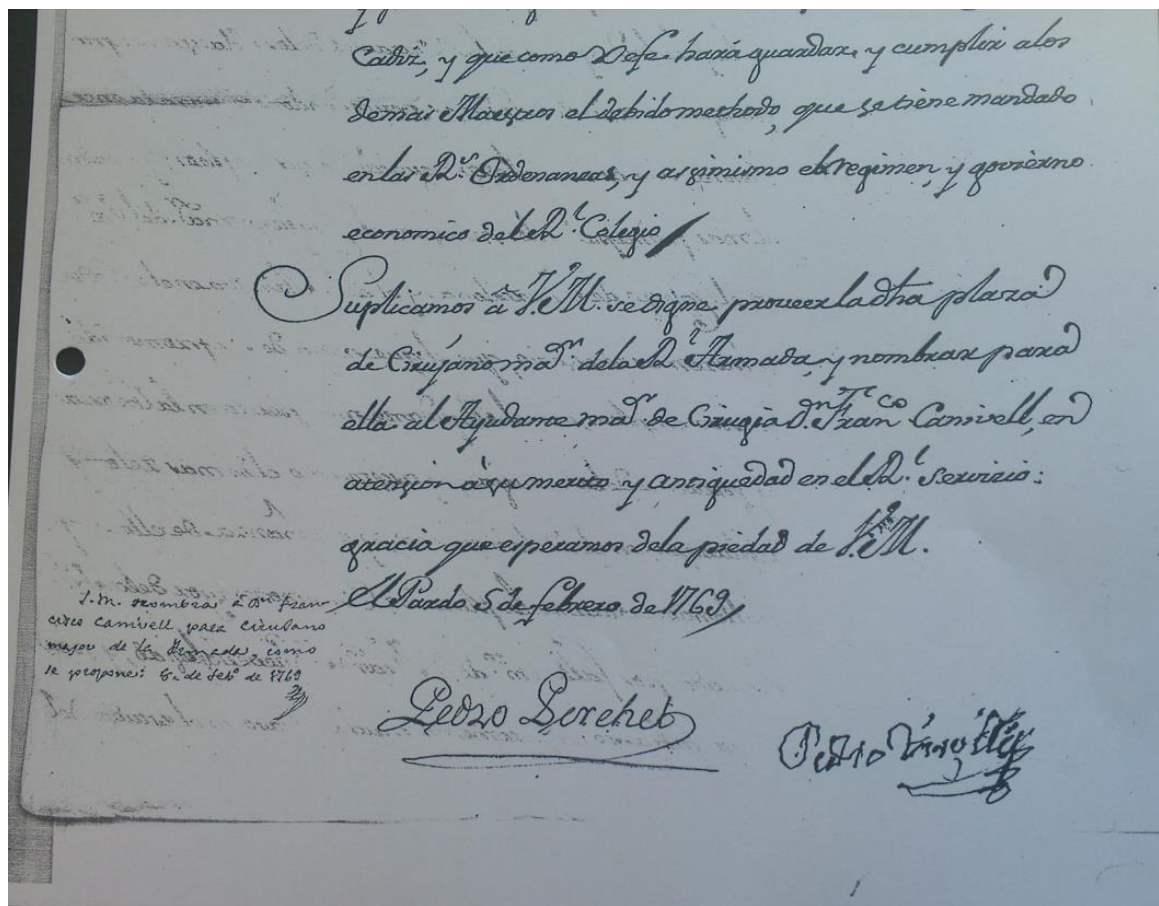 Cadiz, y que como Xefe hará guardar, y cumplir alos
demas Maestros el debido methodo, que se tiene mandado
en las R.s Ordenanzas, y asimismo el regimen, y govierno
economico del R.l Colegio
Suplicamos à V.M. se digne proveer la dha plaza
de Cirujano ma.or dela R.l Armada, y nombrar para
ella al Ayudante ma.or de Cirugia D.n Fran.co Canivell, en
atencion à su merito y antiguedad en el R.l servicio:
gracia que esperamos dela piedad de V.M.
El Pardo 5 de febrero de 1769
S.M. nombra à Dn Fran-
cisco Canivell para Cirujano
mayor de la Armada, como
se propone: de feb.o de 1769
Pedro Perchet
Pedro Virgili